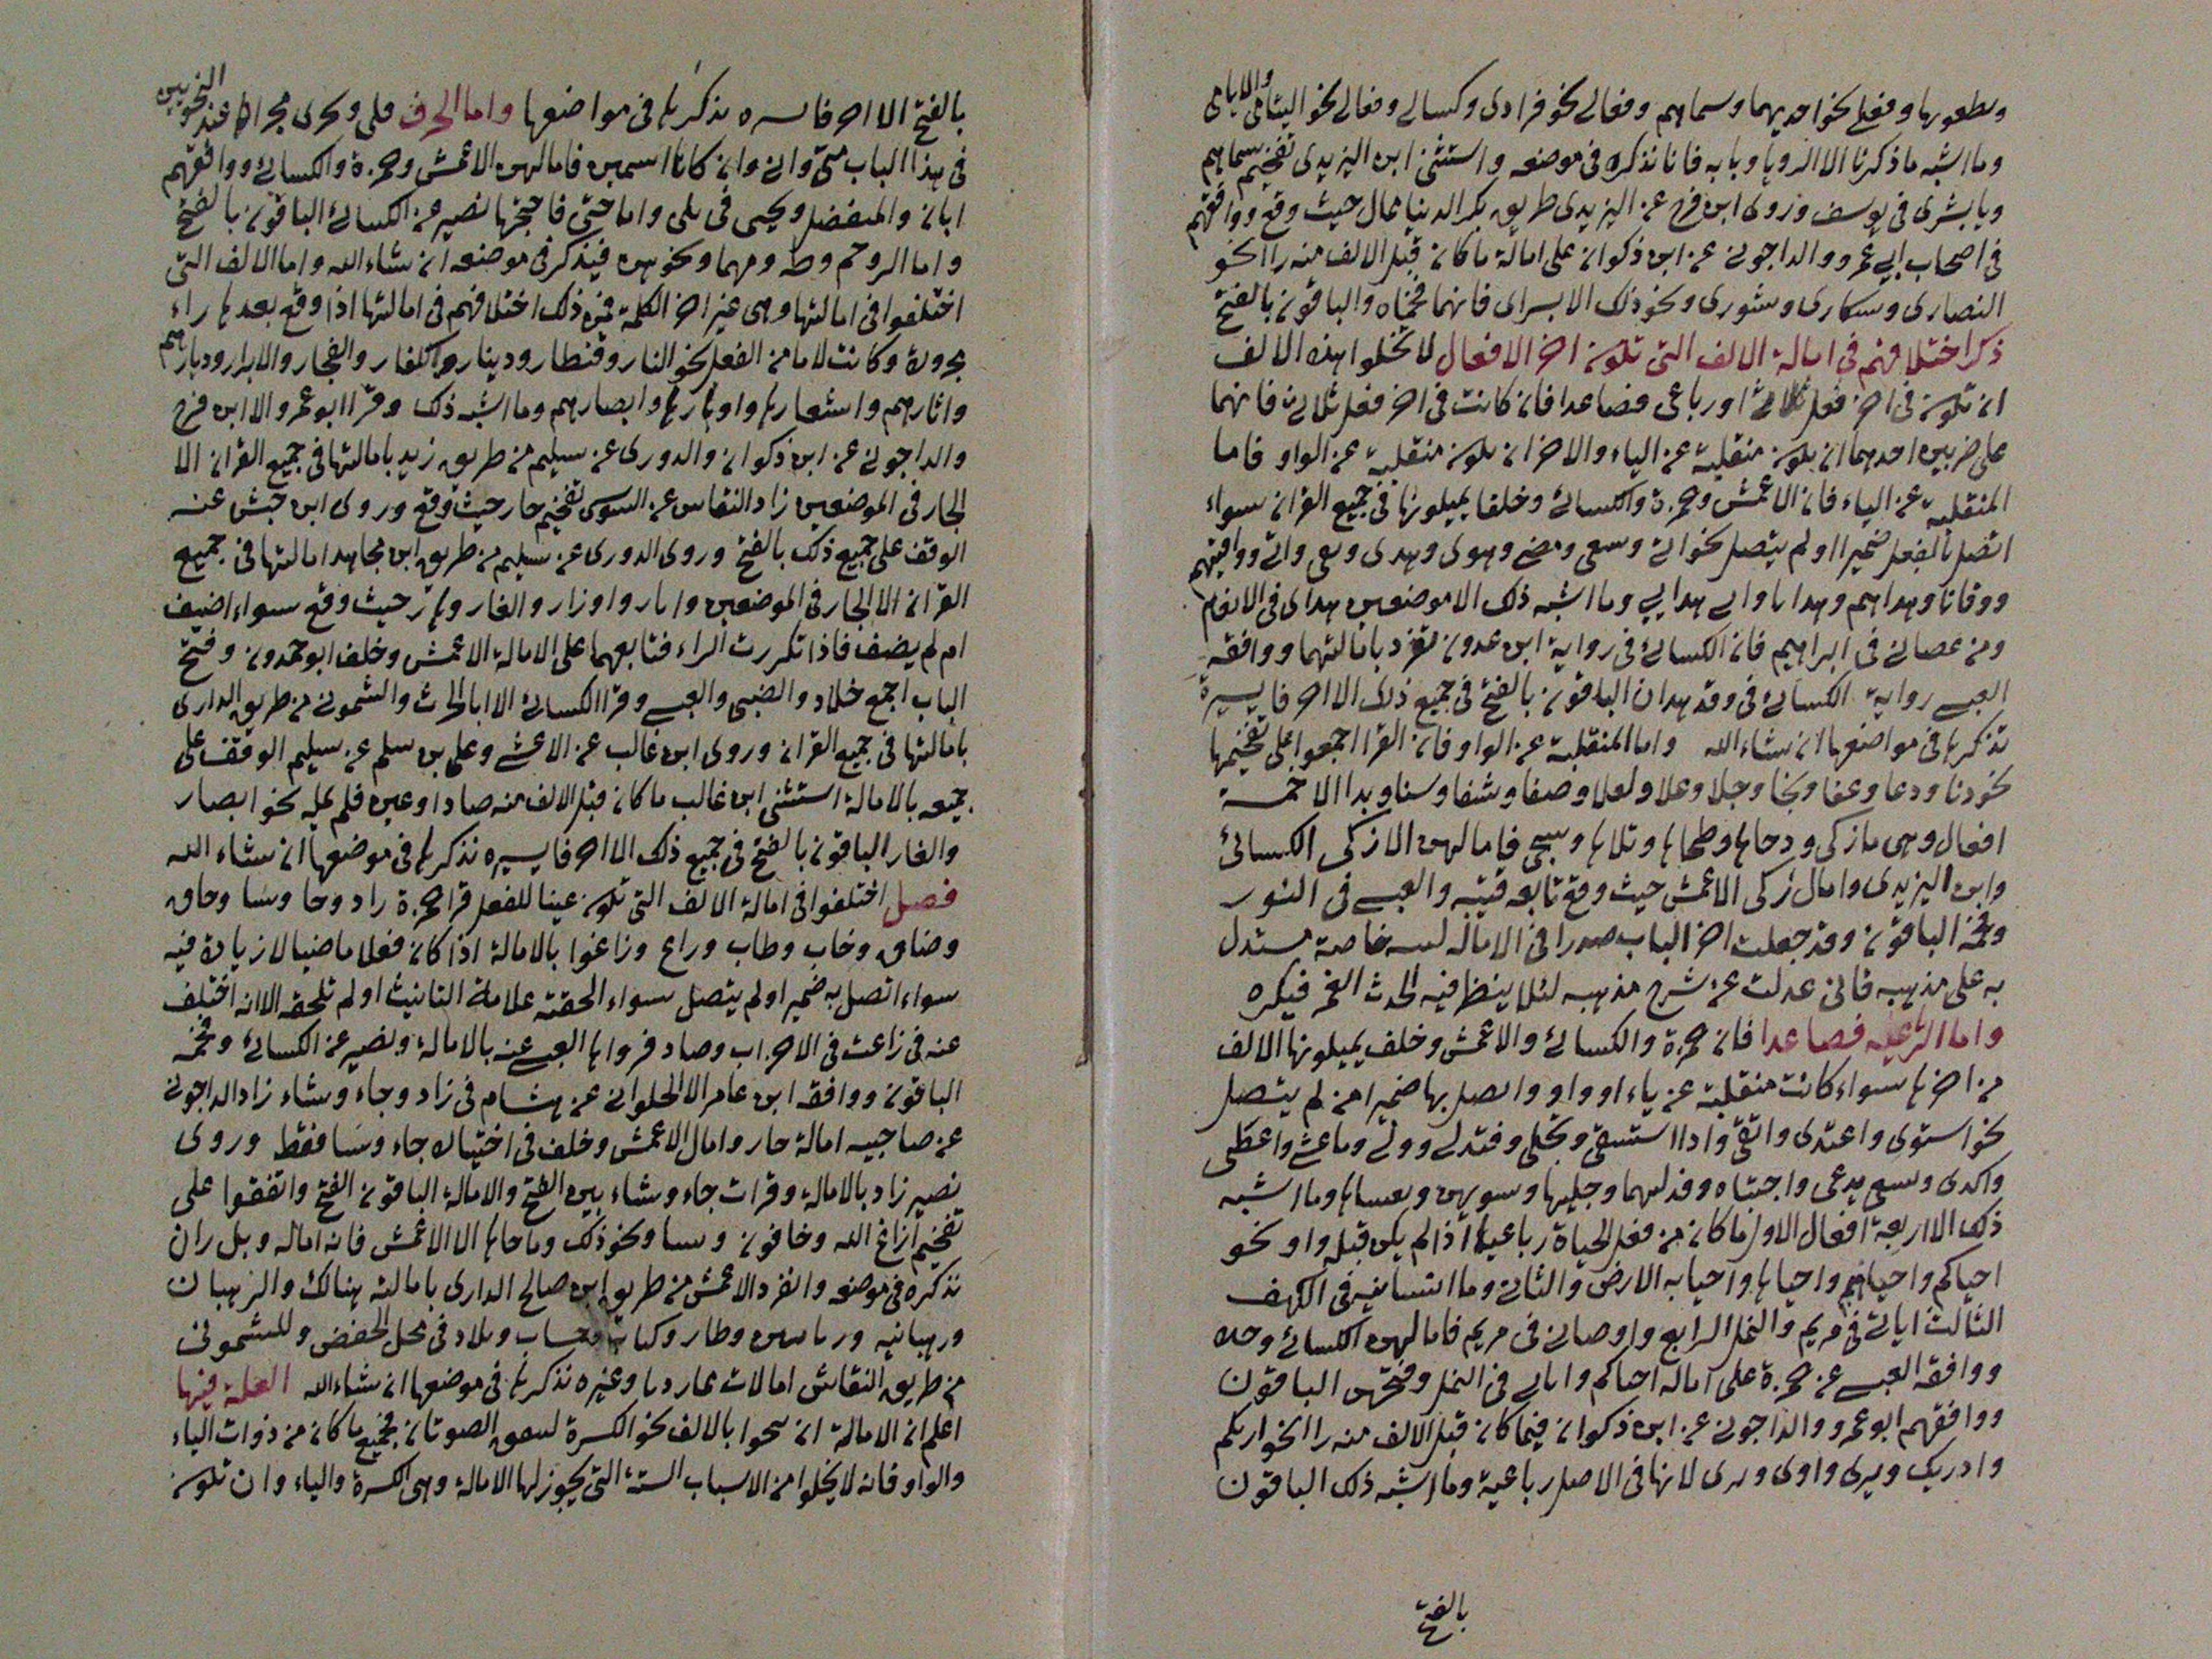 وفعلى نحو احديهما وسماهم وفعالى نحو فرادى وكسالى وفعالى نحو اليتامى والايامى
وما اشبه ما ذكرنا الا الرويا وبابه فانا نذكره فى موضعه واستثنى ابن اليزيدى تفخيم سماهم
ويا بشرى فى يوسف وروى ابن فرح عن اليزيدى طريق بكر الدنيا ممال حيث وقع ووافقهم
فى اصحاب ابى عمرو والداجونى عن ابن ذكوان على امالة ما كان قبل الالف منه را نحو
النصارى وسكارى وشورى ونحو ذلك الا بسراى فانهما فخماه والباقون بالفتح
ذكر اختلافهم فى امالة الالف التى تكون اخر الافعال لا تخلوا هذه الالف
ان تكون فى اخر فعل ثلاثى او رباعى فصاعدا فان كانت فى اخر فعل ثلاثى فانهما
على ضربين احدهما ان يكون منقلبة عن الياء والاخر ان يكون منقلبة عن الواو فاما
المنقلبة عن الياء فان الاعمش وحمزة والكسائى وخلفا يميلونها فى جميع القران سواء
اتصل بالفعل ضميرا او لم يتصل نحو اتى وسعى ومضى وهوى وهدى وبغى واتى ووافيهم
ووقانا وهداهم وهدانا وابى هدايى وما اشبه ذلك الا موضعين هداى فى الانعام
ومن عصانى فى ابراهيم فان الكسائى فى رواية ابن عدون تفرد بامالتهما ووافقه
العبسى رواية الكسائى فى وقد هدان الباقون بالفتح فى جميع ذلك الا احرفا يسيرة
نذكرها فى مواضعها ان شاء الله واما المنقلبة عن الواو فان القرا اجمعوا على تفخيمها
نحو دنا ودعا وعفا ونجا وجلا وعلا ولعلا وصفا وشفا وسنا وبدا الا خمسة
افعال وهى ما زكى ودحاها وطحاها وتلاها وسجى فامالهن الا زكى الكسائى
وابن اليزيدى وامال زكى الاعمش حيث وقع تابعه قتيبه والعبسى فى النور
وفخمه الباقون وقد جعلت اخر الباب صدرا فى الامالة لسه خاصة مستدل
به على مذهبه فانى عدلت عن شرح مذهبه لئلا ينظر فيه الحدث الغمر فيكره
واما الرباعيه فصاعدا فان حمزة والكسائى والاعمش وخلف يميلونها الالف
من اخرها سواء كانت منقلبة عن ياء او واو واتصل بها ضميرا من لم يتصل
نحو استوى واعتدى واتقى واذا استسقى وتجلى وفتدلى وولى وما غشى واعطى
واكدى وسيع يدعى واجتباه وفدليهما وجليها وسويهن ويغساها وما اشبه
ذلك الا اربعة افعال الاول ما كان من فعل الحياة رباعيا اذا لم يكن قبله واو نحو
احياكم واحياهم واحياها واحيا به الارض والثانى وما انسانيه فى الكهف
الثالث اتانى فى مريم والنمل الرابع واوصانى فى مريم فامالهن الكسائى وحده
ووافقه العبسى عن حمزة على امالة احياكم واتانى فى النمل وفتحهن الباقون
ووافقهم ابو عمرو والداجونى عن ابن ذكوان فيما كان قبل الالف منه را نحو اريكم
وادريك ويرى واوى ونرى لانها فى الاصل رباعية وما اشبه ذلك الباقون
بالفتح
بالفتح الا احرفا يسيره نذكرها فى مواضعها واما الحرف فلى ويجرى مجراها عند النحويين
فى هذا الباب متى وانى وان كانا اسمين فامالهن الاعمش وحمزة والكسائى ووافقهم
ابان والمفضل ويحيى فى بلى واما حتى فاحتجزها نصير عن الكسائى الباقون بالفتح
واما الر وحم وطه ومهما ونحوهن فيذكر فى موضعه ان شاء الله واما الالف التى
اختلفوا فى امالتها وهى غير اخر الكلمة فمن ذلك اختلافهم فى امالتها اذا وقع بعدها راء
مجرورة وكانت لاما من الفعل نحو النار وقنطار ودينار والكفار والفجار والابرار وديارهم
واثارهم واشعارها واوبارها وابصارهم وما اشبه ذلك وقرا ابو عمرو الا ابن فرح
والداجونى عن ابن ذكوان والدورى عن سليم من طريق زيد بامالتها فى جميع القران الا
الجار فى الموضعين زاد النقاس عن السوسى تفخيم حار حيث وقع وروى ابن حبش عنه
الوقف على جميع ذلك بالفتح وروى الدورى عن سليم من طريق ابن مجاهد امالتها فى جميع
القران الا الجار فى الموضعين وابار واوزار والغار وهار حيث وقع سواء اضيف
ام لم يضف فاذا تكررت الراء فتابعهما على الامالة الاعمش وخلف ابو حمدون وفتح
الباب اجمع خلاد والضبى والعبسى وقرا الكسائى الا ابا الحرث والشمونى من طريق الدارى
بامالتها فى جميع القران وروى ابن غالب عن الاعشى وعلى بن سلم عن سليم الوقف على
جميعه بالامالة استثنى ابن غالب ما كان قبل الالف منه صادا وعين فلم يمله نحو ابصار
والغار الباقون بالفتح فى جميع ذلك الا احرفا يسيره نذكرها فى موضعها ان شاء الله
فصل اختلفوا فى امالة الالف التى تكون عينا للفعل قرا حمزة زاد وجا وشا وحاق
وضاق وخاب وطاب وزاغ وزاغوا بالامالة اذا كان فعلا ماضيا لا زيادة فيه
سواء اتصل به ضمير او لم يتصل سواء الحقته علامة التانيث او لم تلحقه الا انه اختلف
عنه فى زاغت فى الاحزاب وصاد فرواها العبسى عنه بالامالة ونصير عن الكسائى وفخمه
الباقون ووافقه ابن عامر الا الحلوانى عن هشام فى زاد وجاء وشاء زاد الداجونى
عن صاحبيه امالة حار وامال الاعمش وخلف فى اختياره جاء وشا فقط وروى
نصير زاد بالامالة وقرات جاء وشاء بين الفتح والامالة الباقون الفتح واتفقوا على
تفخيم ازاغ الله وخافون وسا ونحو ذلك وما حاها الا الاعمش فانه اماله وبل ران
نذكره فى موضعه وانفرد الاعمش من طريق ابن صالح الدارى بامالته هنالك والرهبان
ورهبانيه ورماسن وطار وكتاب وحساب وبلاد فى محل الخفض وللشمونى
من طريق النقاش امالات عاردها وغيره نذكرها فى موضعها ان شاء الله العلة فيها
اعلم ان الامالة ان ينحوا بالالف نحو الكسرة ليتفق الصوتان فجميع ما كان من ذوات الياء
والواو فانه لا يخلوا من الاسباب الستة التى يجوز لها الامالة وهى الكسرة والياء وان تكون